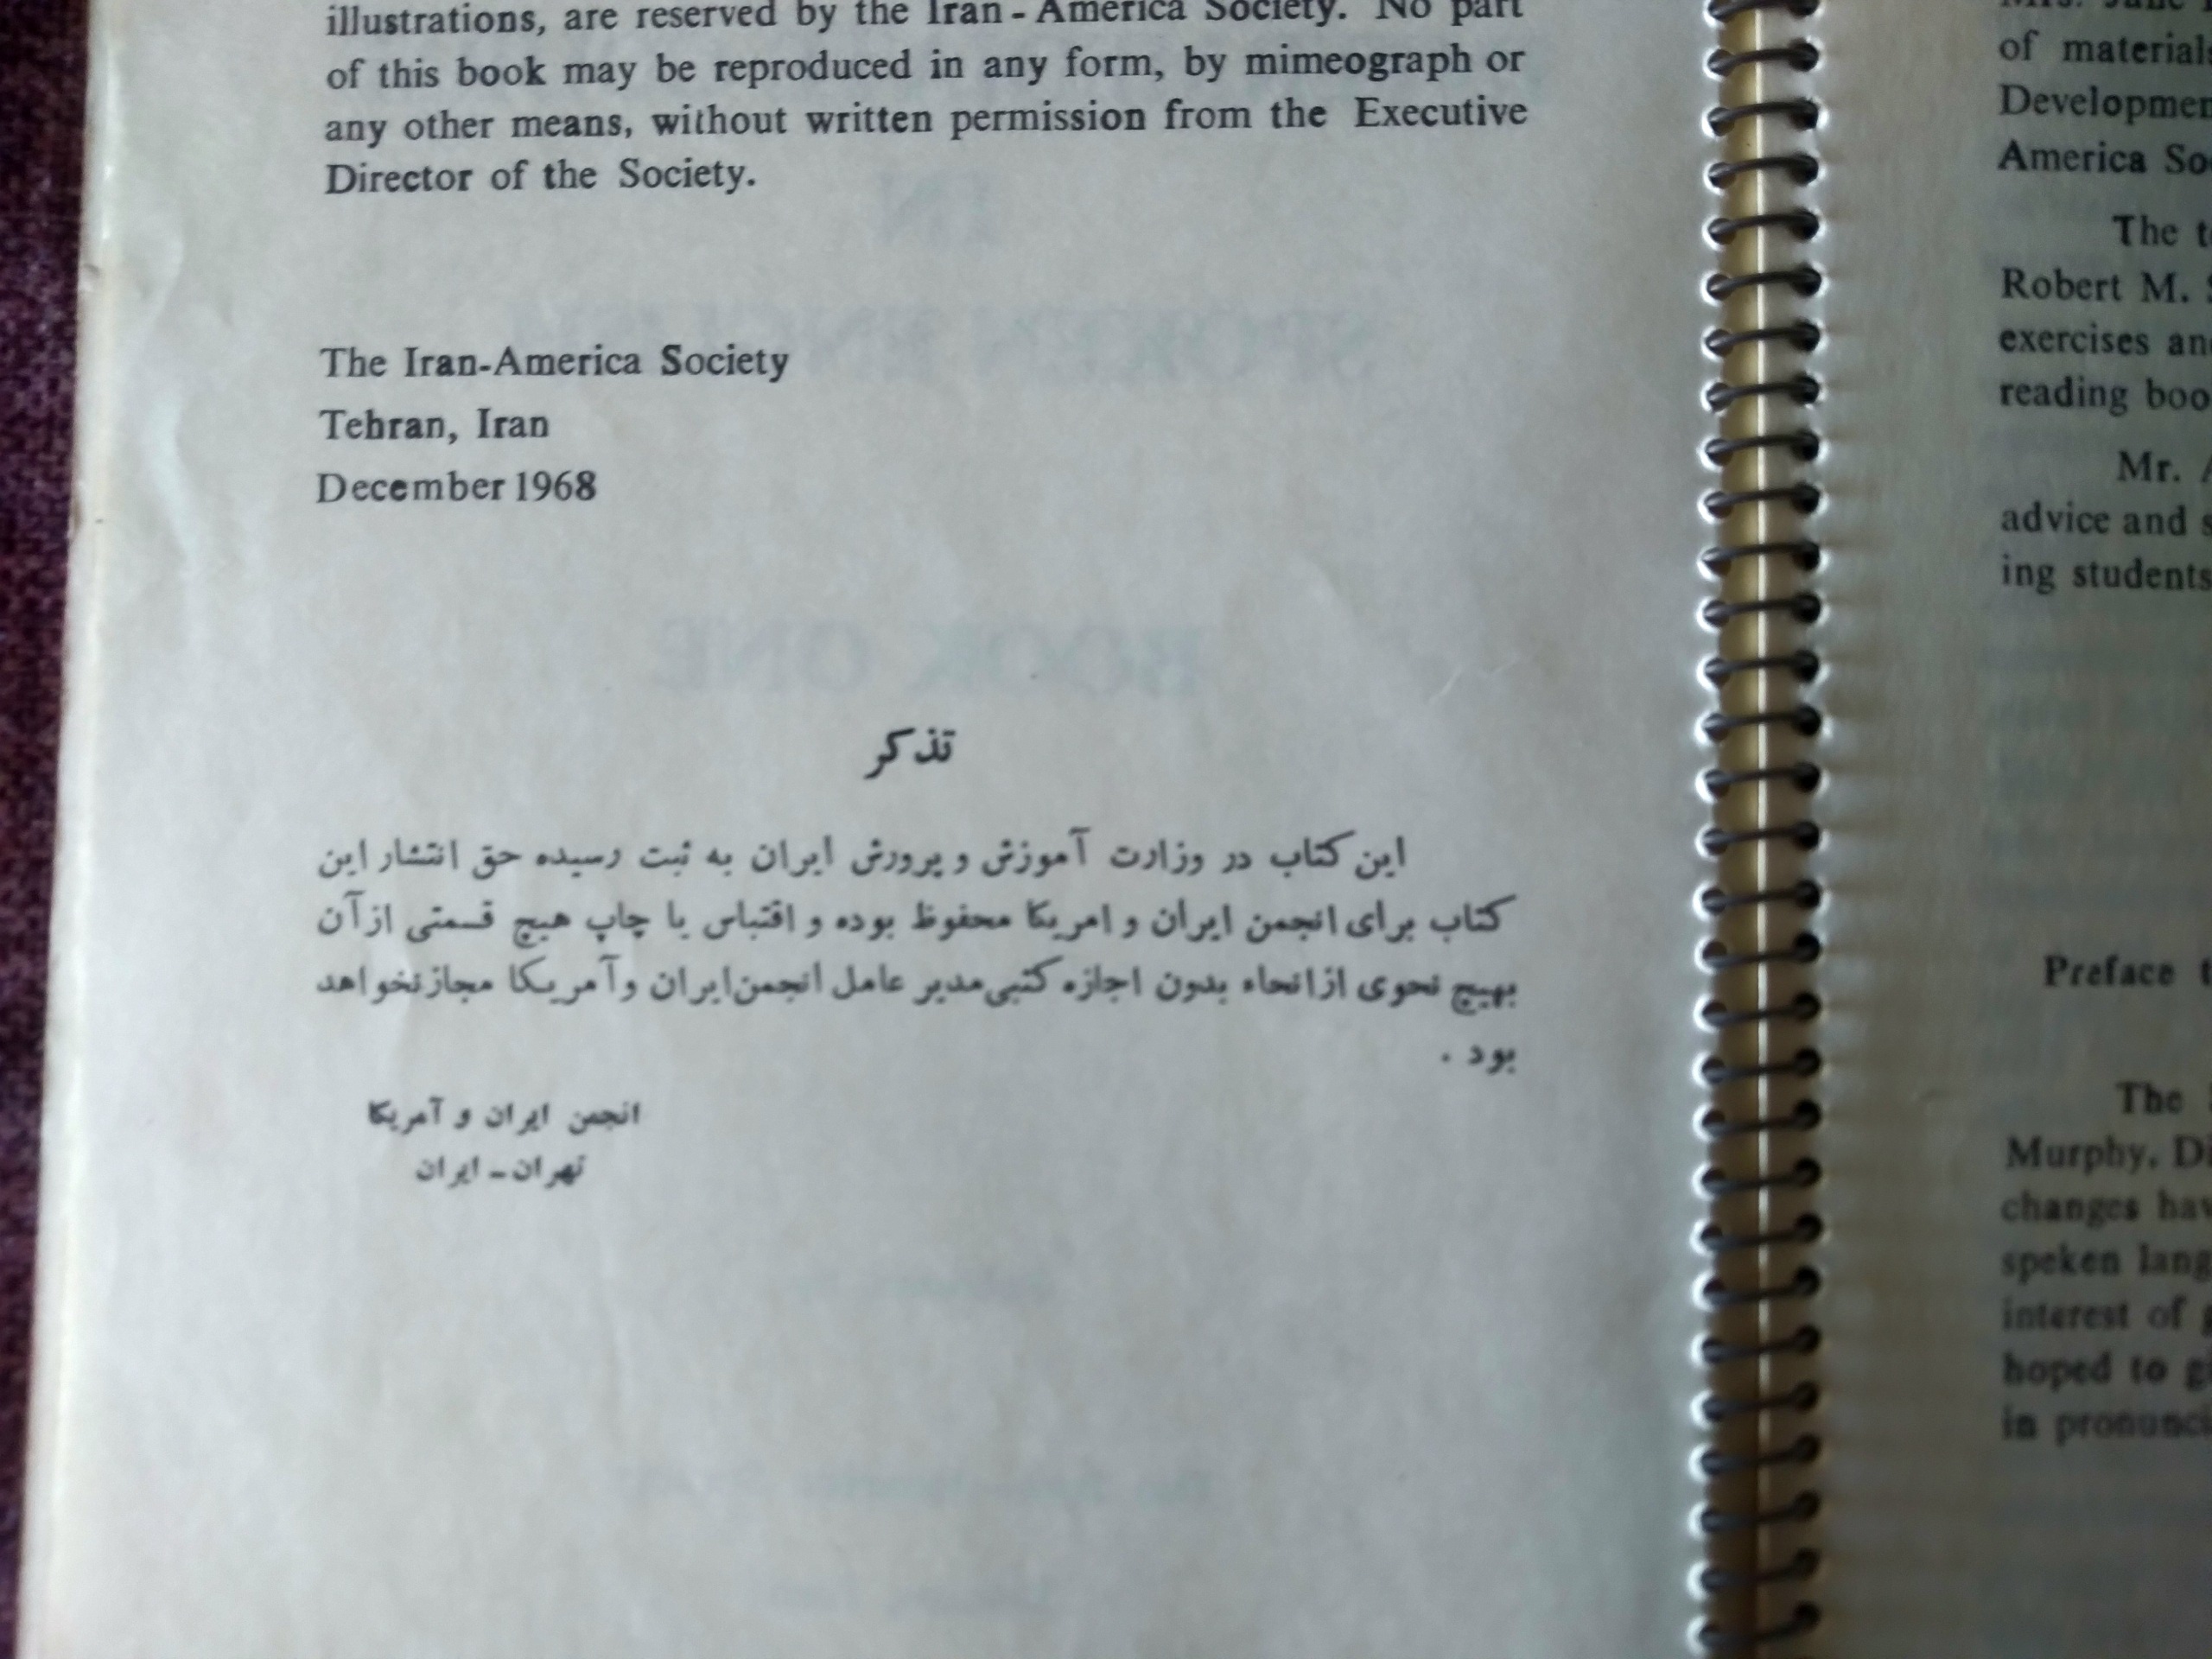 illustrations, are reserved by the Iran - America Society. No part
of this book may be reproduced in any form, by mimeograph or
any other means, without written permission from the Executive
Director of the Society.
The Iran-America Society
Tehran, Iran
December 1968
تذکر
این کتاب در وزارت آموزش و پرورش ایران به ثبت رسیده حق انتشار این
کتاب برای انجمن ایران و امریکا محفوظ بوده و اقتباس یا چاپ هیچ قسمتی از آن
بهیچ نحوی از انحاء بدون اجازه کتبی مدیر عامل انجمن ایران و آمریکا مجاز نخواهد
بود .
انجمن ایران و آمریکا
تهران ـ ایران
of materials
Developmen
America So
The t
Robert M.
exercises an
reading boo
Mr. A
advice and s
ing students
Preface t
The
Murphy, Di
changes hav
spoken lang
interest of g
hoped to gi
in pronunci